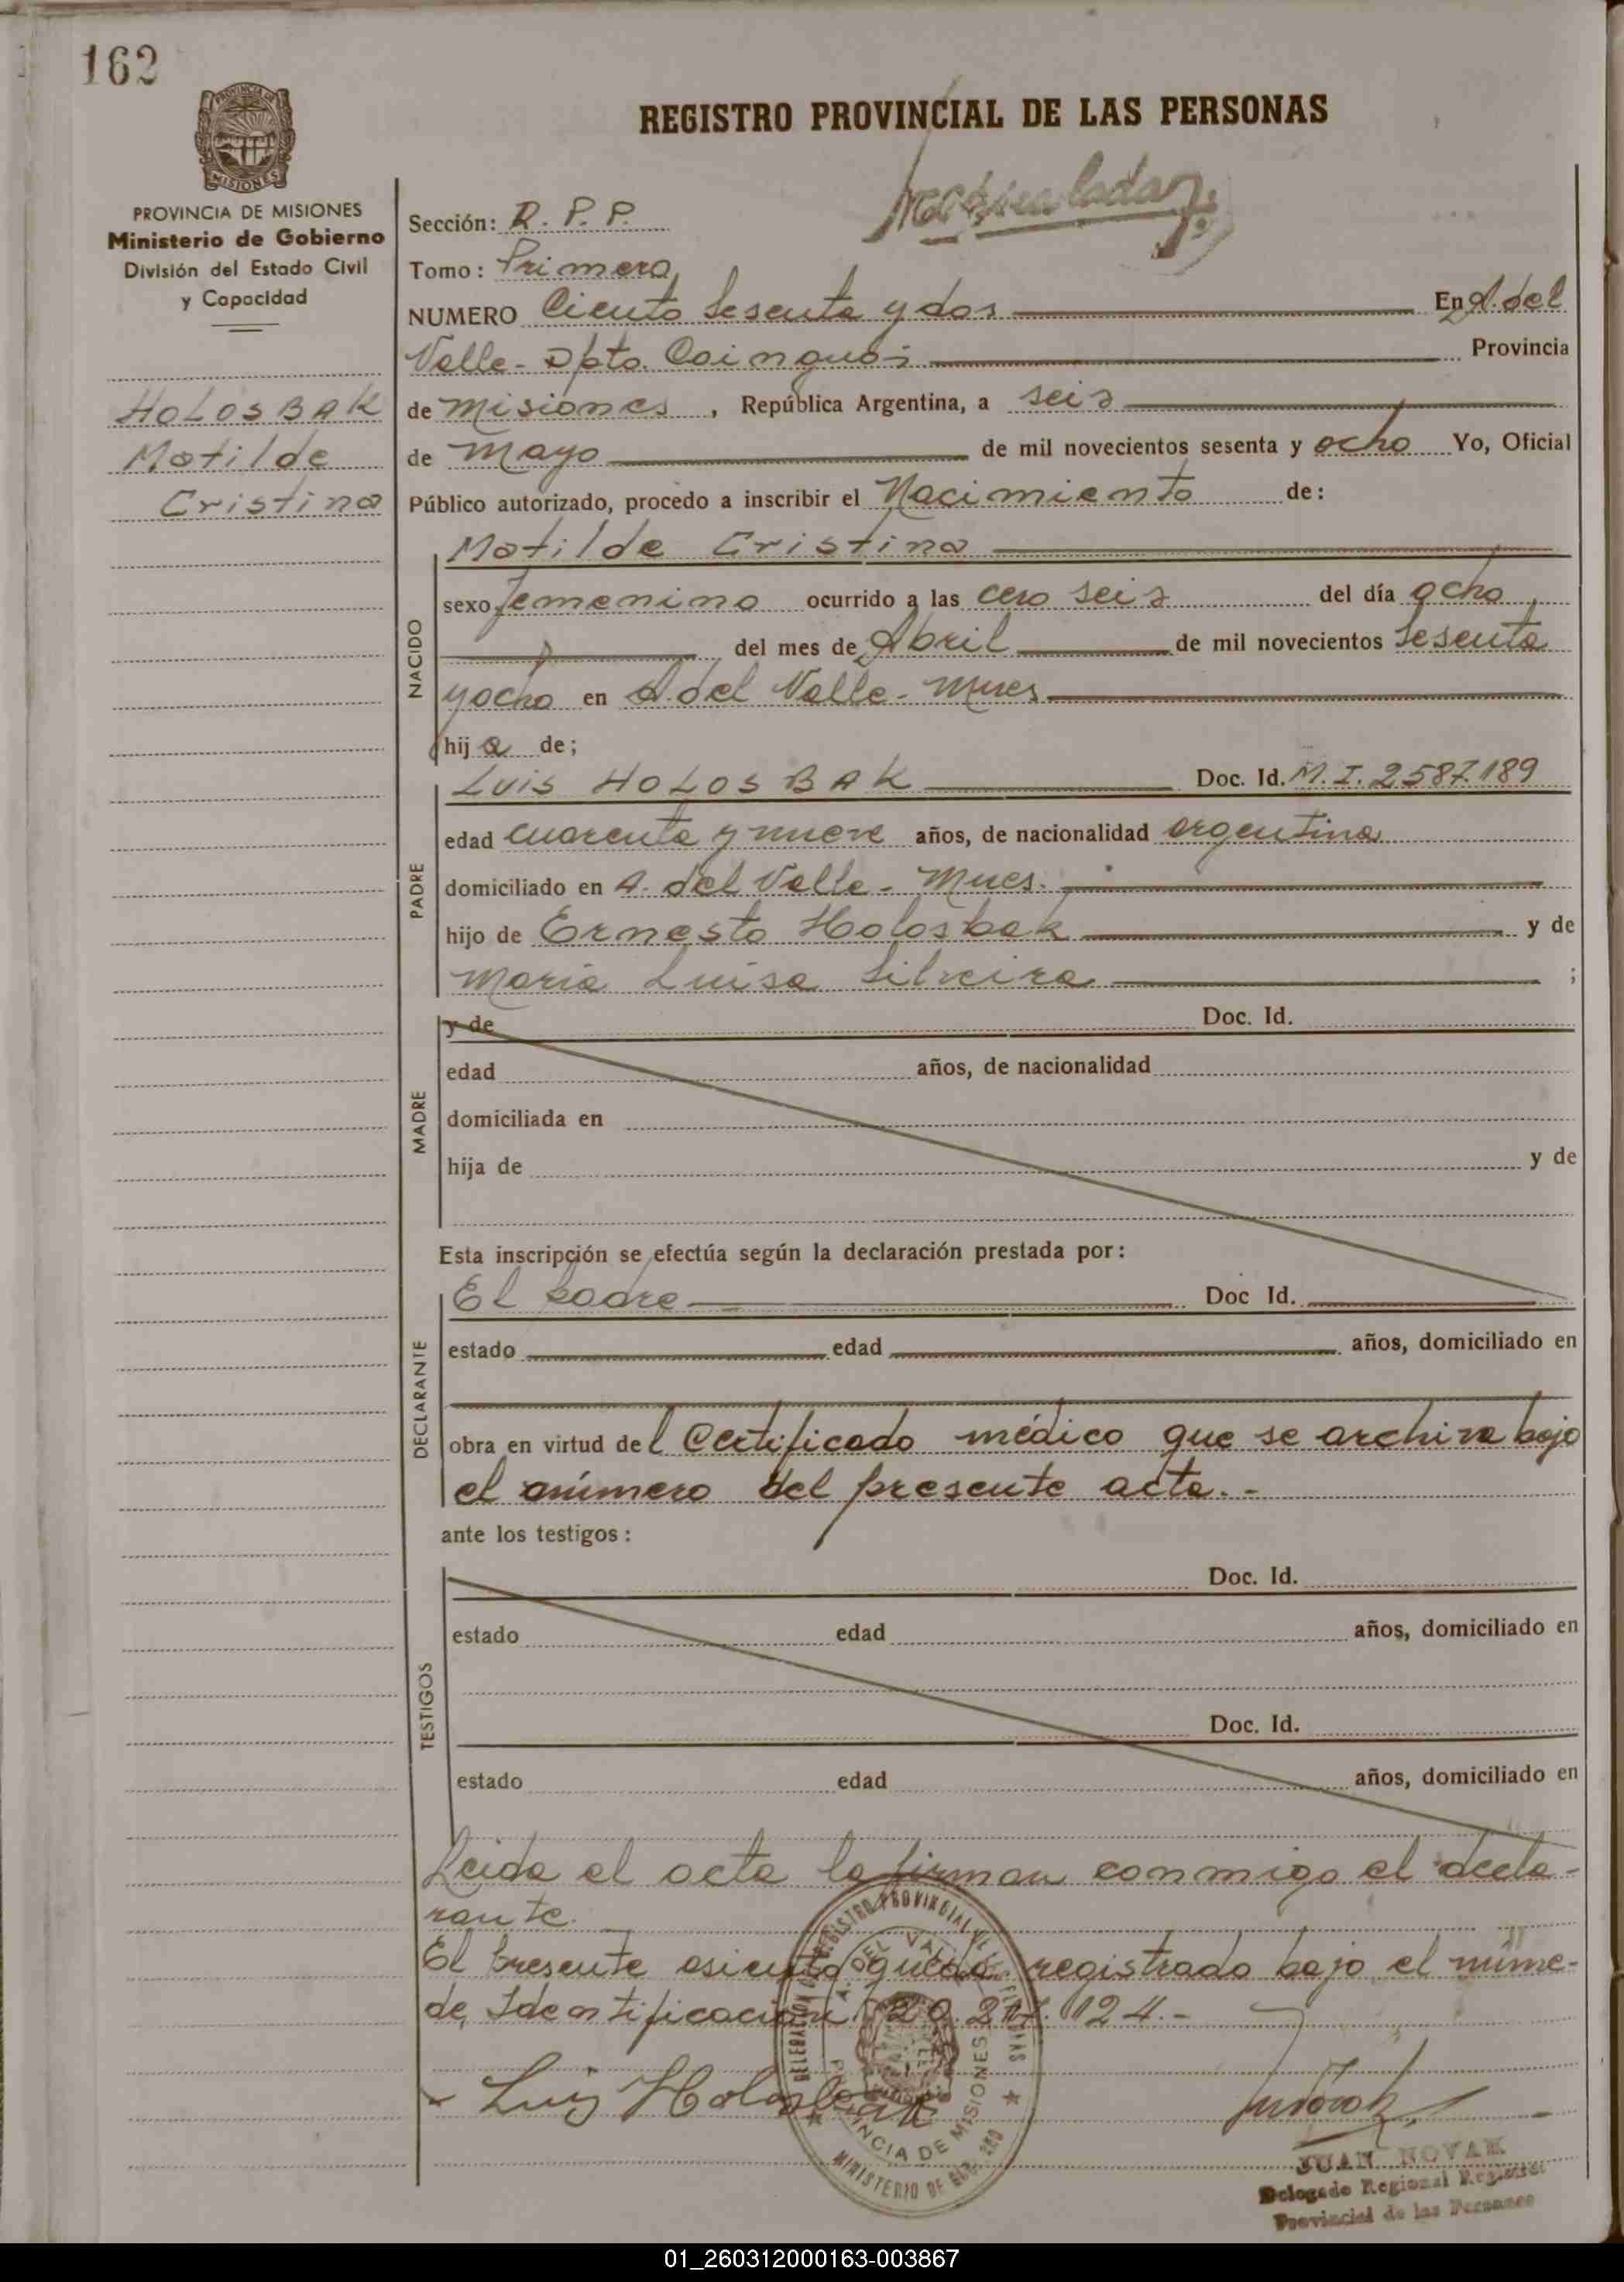 162
PROVINCIA DE MISIONES
REGISTRO PROVINCIAL DE LAS PERSONAS
PROVINCIA DE MISIONES
Ministerio de Gobierno
División del Estado Civil
y Capacidad
HOLOSBAK
Matilde
Cristina
Sección: R. P. P.
Tomo: Primero
NUMERO Ciento Sesenta y dos En A. del
Valle - Dpto. Cainguás Provincia
de Misiones, República Argentina, a seis
de Mayo de mil novecientos sesenta y ocho Yo, Oficial
Público autorizado, procedo a inscribir el Nacimiento de:
NACIDO
Matilde Cristina
sexo femenino ocurrido a las cero seis del día ocho
del mes de Abril de mil novecientos Sesenta
y ocho en A. del Valle - Mnes
hija de;
PADRE
LUIS HOLOSBAK Doc. Id. M.I. 2587.189
edad cuarenta y nueve años, de nacionalidad argentina
domiciliado en A. del Valle - Mnes.
hijo de Ernesto Holosbak y de
Maria Luisa Silveira ;
MADRE
y de Doc. Id.
edad años, de nacionalidad
domiciliada en
hija de y de
Esta inscripción se efectúa según la declaración prestada por:
DECLARANTE
El padre Doc Id.
estado edad años, domiciliado en
obra en virtud del Certificado médico que se archiva bajo
el número del presente acta.-
ante los testigos:
TESTIGOS
Doc. Id.
estado edad años, domiciliado en
Doc. Id.
estado edad años, domiciliado en
Leida el acta la firman conmigo el decla-
rante.
El presente asiento queda registrado bajo el núme-
de Identificación 20.217.124.-
Luis Holosbak
JUAN NOVAK
Delegado Regional Registro
Provincial de las Personas
01_260312000163-003867